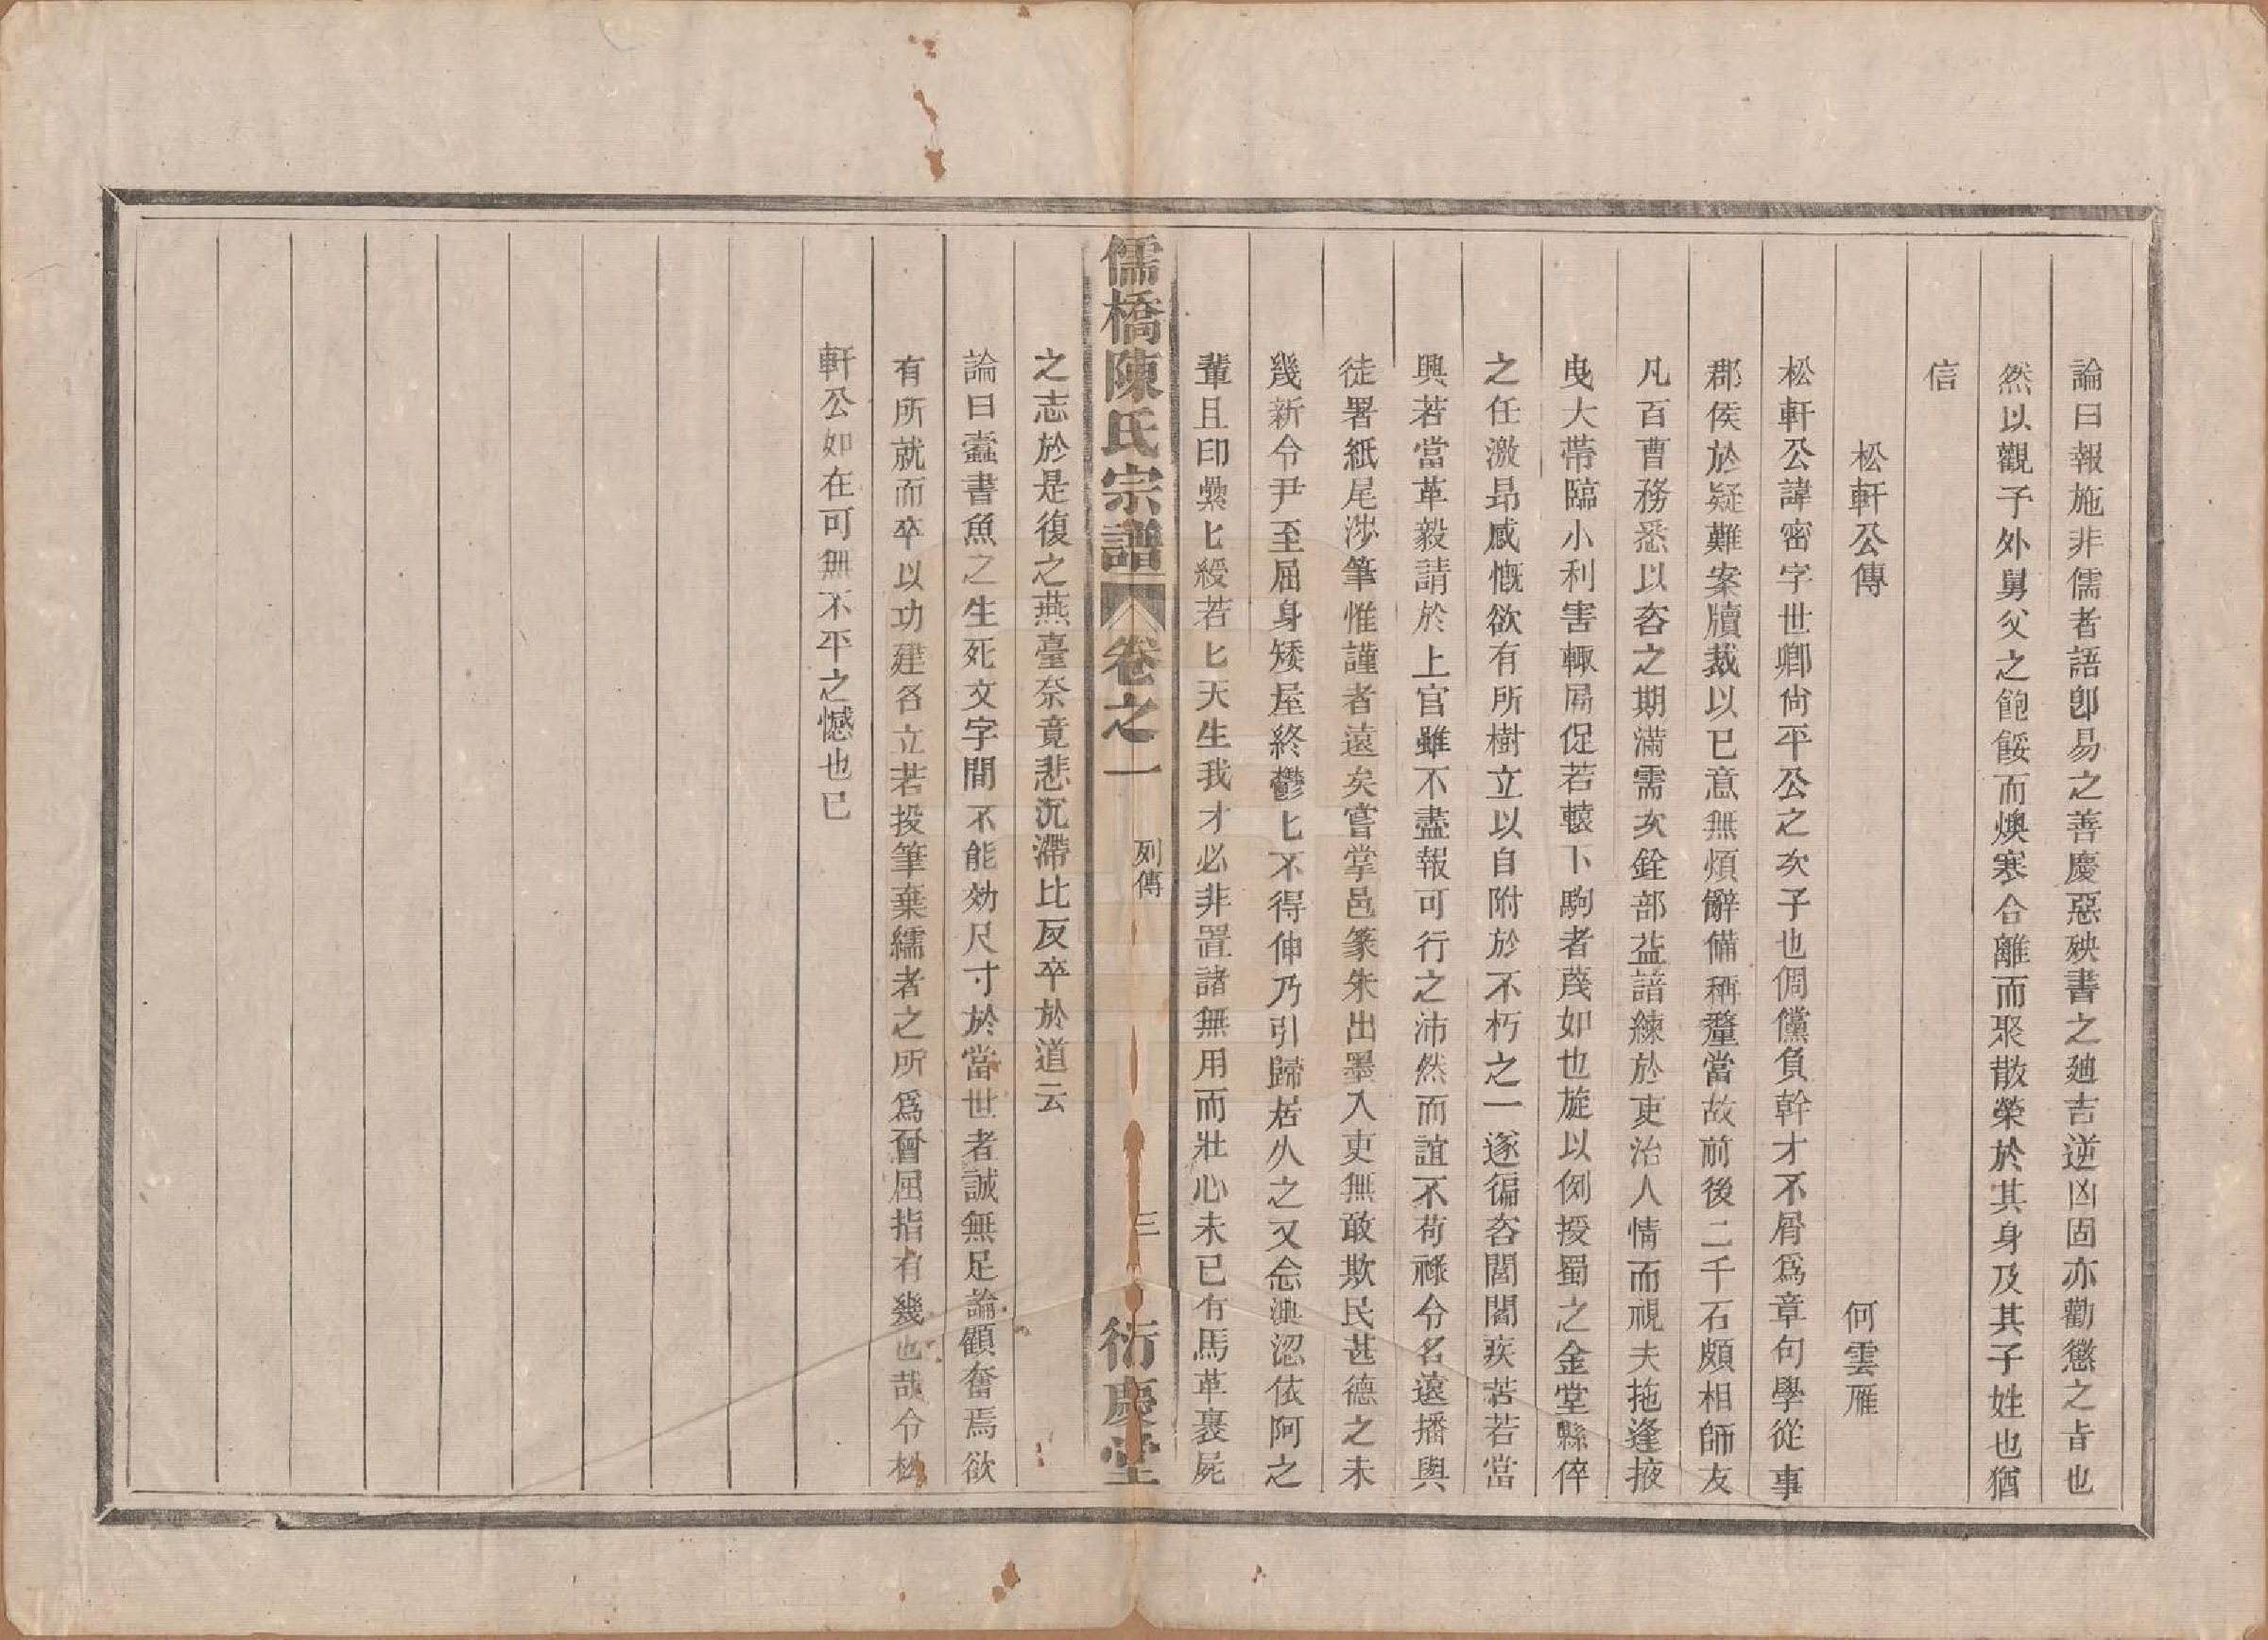 論曰報施非儒者語卽易之善慶惡殃書之廸吉逆凶固亦勸懲之旨也
然以觀予外舅父之飽餒而燠寒合離而聚散榮於其身及其子姓也猶
信
松軒公傳　何雲雁
松軒公諱密字世卿尙平公之次子也倜儻負幹才不屑爲章句學從事
郡侯於疑難案牘裁以已意無煩辭備稱釐當故前後二千石頗相師友
凡百曹務悉以咨之期滿需次銓部益諳練於吏治人情而視夫拖逢掖
曳大帶臨小利害輙局促若轅下駒者蔑如也旋以例授蜀之金堂縣倅
之任激昂感慨欲有所樹立以自附於不朽之一遂徧咨閭閻疾苦若當
興若當革毅請於上官雖不盡報可行之沛然而誼不茍祿令名遠播與
徒署紙尾涉筆惟謹者遠矣嘗掌邑篆朱出墨入吏無敢欺民甚德之未
幾新令尹至屈身矮屋終鬱匕不得伸乃引歸居久之又念洟涊依阿之
輩且印纍匕綬若匕天生我才必非置諸無用而壯心未已有馬革裹屍
之志於是復之燕臺奈竟悲沉滯比反卒於道云
論曰蠹書魚之生死文字間不能効尺寸於當世者誠無足論顧奮焉欲
有所就而卒以功建名立若投筆棄繻者之所爲曾屈指有幾也哉令松
軒公如在可無不平之憾也已
儒橋陳氏宗譜　卷之一　列傳　三　衍慶堂